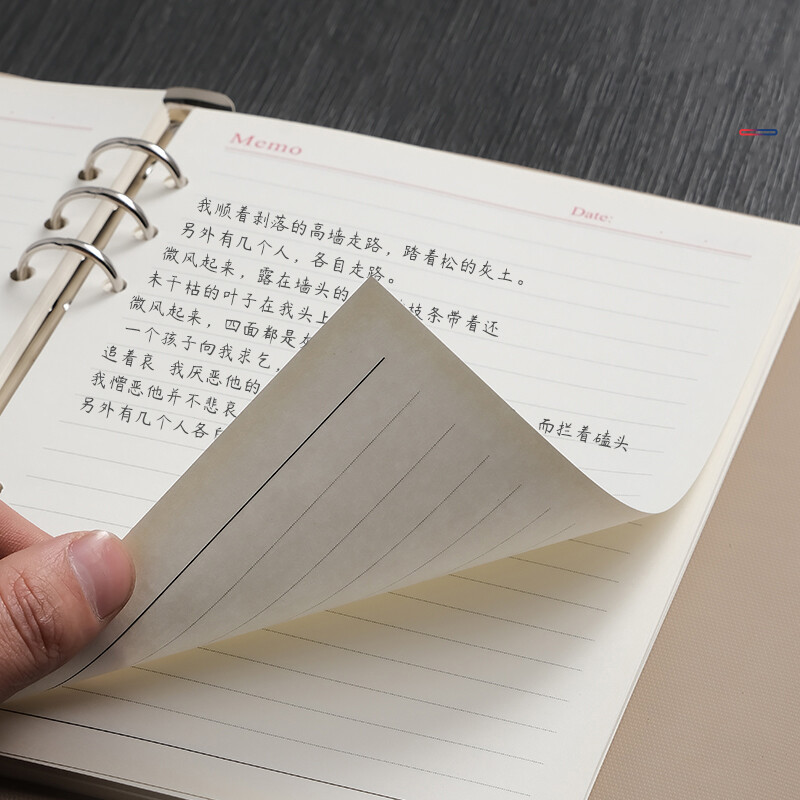 Memo
Date:
我顺着剥落的高墙走路，踏着松的灰土。
另外有几个人，各自走路。
微风起来，露在墙头的 枝条带着还
未干枯的叶子在我头上
微风起来，四面都是灰
一个孩子向我求乞，
追着哀 我厌恶他的
我憎恶他并不悲哀 而拦着磕头
另外有几个人各自